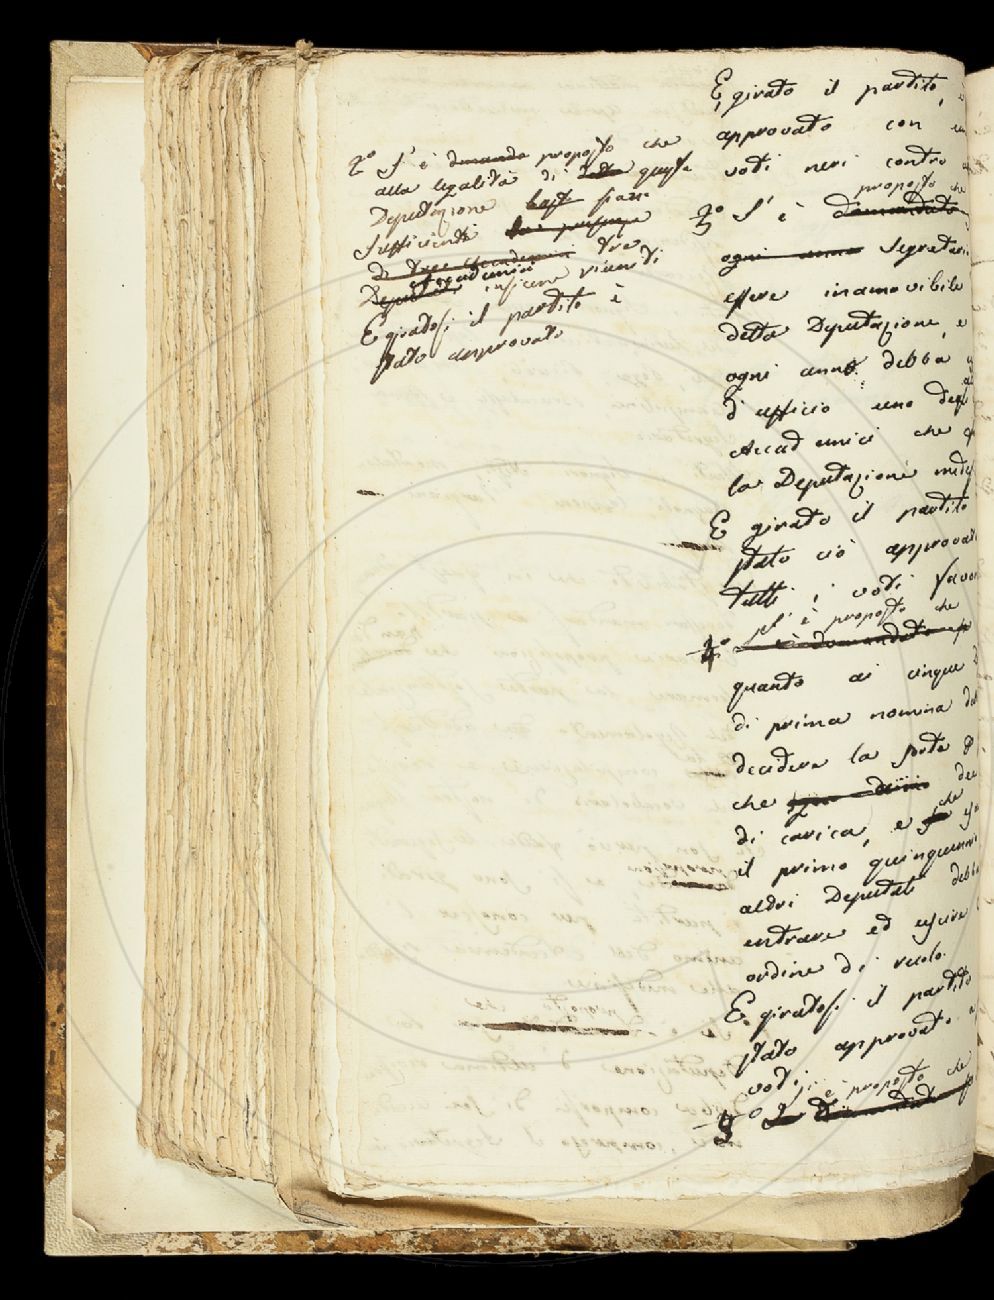 2º S' è domanda proposto che
alla legalità di tutta questa
Deputazione basti siano
sufficienti la presenza
di tre Accademici tre
Deputati Accademici insieme riuniti
E giratosi il partito è
stato approvato
E, girato il partito, è
approvato con un
voti neri contro
proposto che
3º S' è domandato
ogni anno Segretario
essere inamovibile
detta Deputazione, e
ogni anno debba
d'ufficio uno degli
Accademici che
la Deputazione
E girato il partito
stato ciò approvato
tutti i voti favor
S' è proposto che
4º è domandato
quanto ai cinque
di prima nomina
decidere la sorte
che
di carica, e che
il primo quinquennio
altri Deputati debba
entrare ed uscire
ordine di ruolo.
E, giratosi il partito
stato approvato
voti
è proposto che
5º